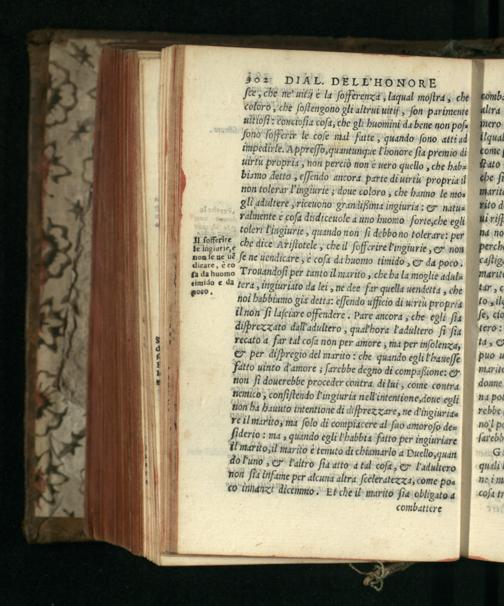 302 DIAL. DELL'HONORE
sce, che ne' uitij è la sofferenza, laqual mostra, che
coloro, che sostengono gli altrui uitij, son parimente
uitiosi: conciosia cosa, che gli huomini da bene non pos-
sono sofferir le cose mal fatte, quando sono atti ad
impedirle. Appresso, quantunque l'honore sia premio di
uirtù propria, non perciò non è uero quello, che hab-
biamo detto, essendo ancora parte di uirtù propria il
non tolerar l'ingiurie; doue coloro, che hanno le mo-
gli adultere, riceuono grandissima ingiuria: & natu-
ralmente è cosa disdiceuole a uno huomo forte, che egli
toleri l'ingiurie, quando non si debbono tolerare: per
che dice Aristotele, che il sofferire l'ingiurie, & non
se ne uendicare, è cosa da huomo timido, & da poco.
Trouandosi per tanto il marito, che ha la moglie adul-
tera, ingiuriato da lei, ne dee far quella uendetta, che
noi habbiamo gia detta: essendo ufficio di uirtù propria
il non si lasciare offendere. Pare ancora, che egli sia
disprezzato dall'adultero, qual'hora l'adultero si sia
recato a far tal cosa non per amore, ma per insolenza,
& per dispregio del marito: che quando egli l'hauesse
fatto uinto d'amore; sarebbe degno di compassione: &
non si douerebbe proceder contra di lui, come contra
nemico, consistendo l'ingiuria nell'intentione, doue egli
non ha hauuto intentione di disprezzare, ne d'ingiuria-
re il marito, ma solo di compiacere al suo amoroso de-
siderio: ma, quando egli l'habbia fatto per ingiuriare
il marito, il marito è tenuto di chiamarlo a Duello, quan
do l'uno, & l'altro sia atto a tal cosa, & l'adultero
non sia infame per alcuna altra sceleratezza, come po-
co innanzi dicemmo. Et che il marito sia obligato a
combattere
Il sofferire
le ingiurie, e
non se ne uē
dicare, è co
sa da huomo
timido e da
poco.